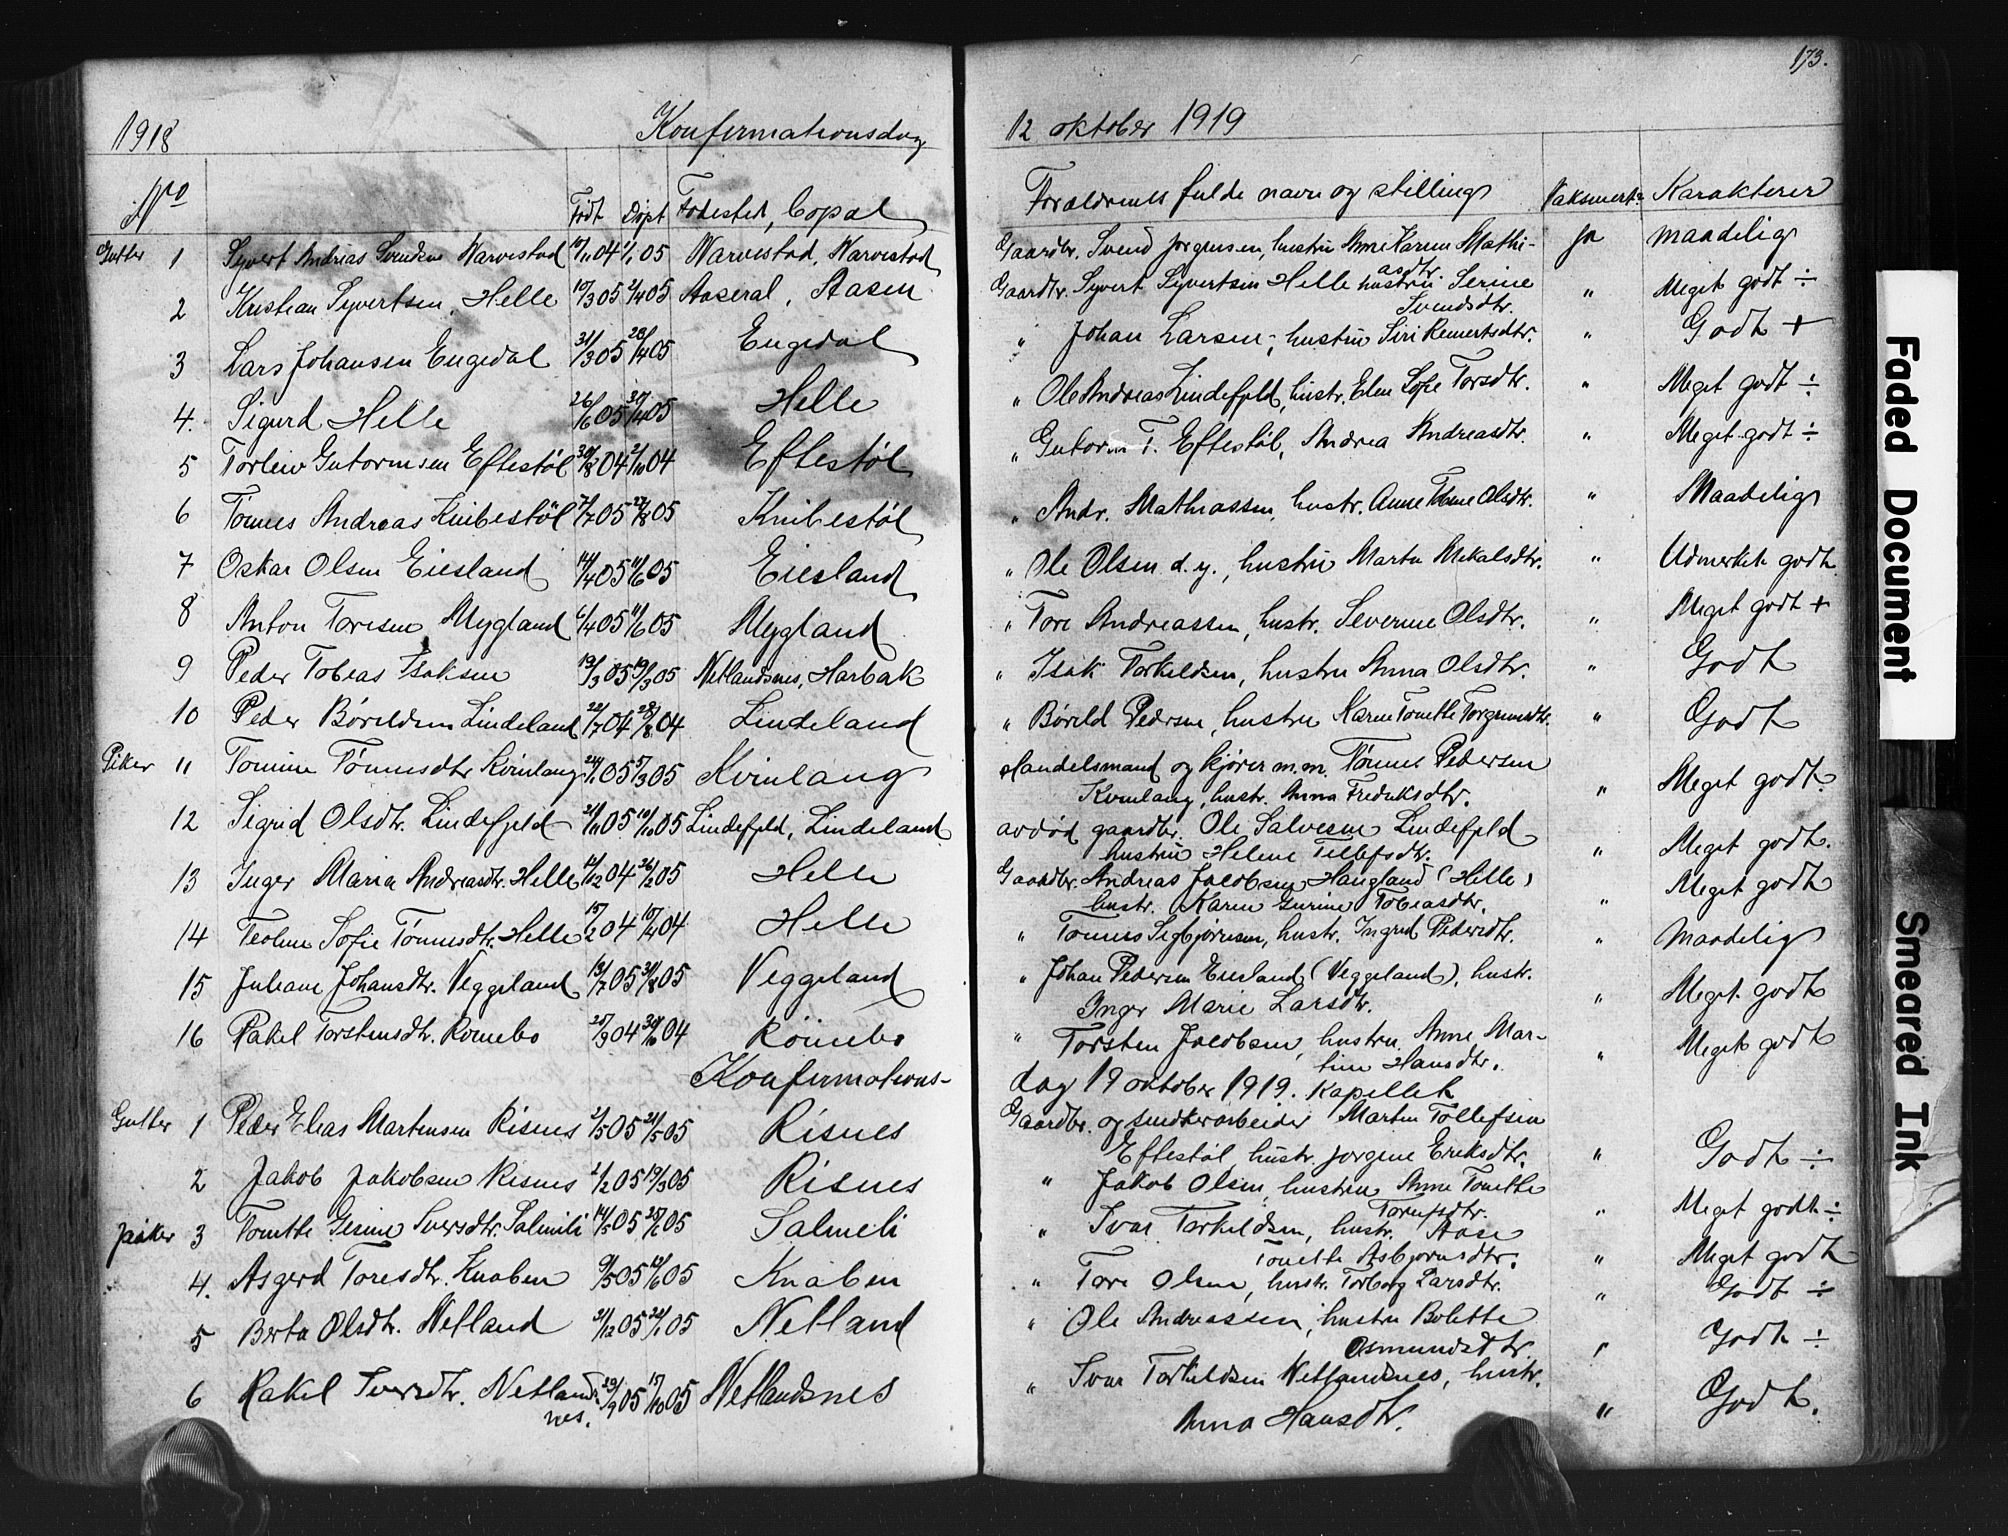 173.
1918 Konfirmationsdag 12 oktober 1919
No Født Døpt Fødested, bopæl Forældrenes fulde navn og stilling Vaksinert? Karakterer
Gutter 1 Syvert Andreas Svendsen Warvestad 04 05 Warvestad, Warvestad Gaardbr. Svend Jørgensen, hustru Anne Karen Mathi- ja maadelig
asdtr.
2 Kristian Syvertsen, Helle 19/3 05 2/4 05 Aaseral, Aasen Gaardbr. Syvert Syvertsen Helle hustru Serine " Meget godt ÷
Svendsdtr.
3 Lars Johansen Engedal 31/3 05 28/4 05 Engedal " Johan Larsen, hustru Siri Reinertsdtr. " Godt +
4. Sigurd Helle 26/6 05 05 Helle " Ole Andreas Lindefjeld, hustr. Elen Sofie Torsdtr. " Meget godt ÷
5 Torleiv Gutormsen Eftestøl 30/8 04 2/10 04 Eftestøl " Gutorm T. Eftestøl, Andrea Andreasdtr. " Meget godt ÷
6 Tønnes Andreas Knibestøl 7/7 05 27/8 05 Knibestøl " Andr. Mathiassen, hustr. Anne Tobine Olsdtr. " Maadelig
7 Oskar Olsen Eiesland 14/4 05 11/6 05 Eiesland " Ole Olsen d. y., hustru Marta Mikalsdtr. " Udmerket godt
8 Anton Toresen Mygland 6/4 05 11/6 05 Mygland " Tore Andreassen, hustr. Severine Olsdtr. " Meget godt +
9 Peder Tobias Isaksen 13/3 05 19/3 05 Netlandsnes, Harbak " Isak Torkeldsen, hustru Anna Olsdtr. " Godt
10 Peder Børildsen Lindeland 22/7 04 28/8 04 Lindeland " Børild Pedersen, hustru Karen Tonette Torgrimsdtr. " Godt
Piker 11 Tomine Tønnesdtr Kvinlaug 24/1 05 5/3 05 Kvinlaug Handelsmand og kjører m.m. Tønnes Pedersen
Kvinlaug, hustr. Anna Fredriksdtr. " Meget godt.
12 Sigrid Olsdtr. Lindefjeld 05 05 Lindefjeld, Lindeland avdød gaardbr. Ole Salvesen Lindefjeld
hustru Helene Tellefsdtr. " Meget godt.
13 Inger Maria Andreasdtr. Helle 12/12 04 26/2 05 Helle Gaardbr. Andreas Jacobsen Haugland (Helle)
hustr. Karen Gurine Tobiasdtr. " Meget godt
14 Teoline Sofie Tønnesdtr. Helle 15/2 04 10/4 04 Helle " Tønnes Segbjørnsen, hustr. Ingrid Pedersdtr. " Maadelig
15 Juliane Johansdtr. Veggeland 13/7 05 31/8 05 Veggeland " Johan Pedersen Eiesland (Veggeland), hustr.
Inger Marie Larsdtr. " Meget godt
16 Rakel Torstensdtr. Romebo 25/9 04 30/10 04 Rømebo " Torsten Jacobsen, hustru Anne Mar-
tine Hansdtr. " Meget godt
Konfirmations- dag 19 oktober 1919. Kapellet
Gutter 1 Peder Elias Martensen Risnes 2/5 05 21/5 05 Risnes Gaardbr. og smidtearbeider Marten Tollefsen
Eftestøl, hustr. Jørgine Eriksdtr. " Godt ÷
2 Jakob Jakobsen Risnes 2/2 05 19/3 05 Risnes " Jakob Olsen, hustru Anne Tonette
Torjusdtr. " Meget godt ÷
piker 3 Tonette Gesine Iversdtr. Salmeli 14/5 05 05 Salmeli " Ivar Torkildsen, hustr. Aase
Tonette Asbjørnsdtr. " Meget godt
4. Asgerd Toresdtr. Knaben 9/5 05 12/6 05 Knaben " Tore Olsen, hustr. Torborg Larsdtr. " Godt ÷
5 Berta Olsdtr. Netland 05 05 Netland " Ole Andreassen, hustru Bolette
Osmundsdtr. " Godt ÷
6 Rakel Iversdtr. Netlands- 29/9 05 15/10 05 Netlandsnes " Ivar Torkeldsen Netlandsnes, hustr.
nes. Anna Hansdtr. " Godt.
Faded Document
Smeared Ink